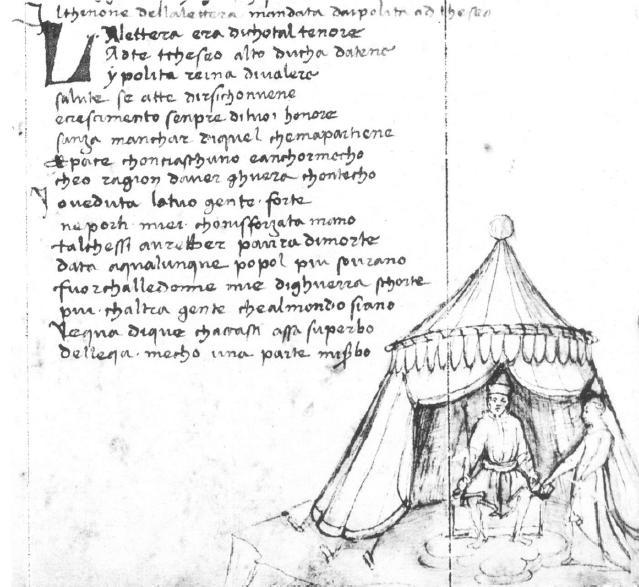 Il thinore della lettera mandata da ipolita ad theseo
La lettera era di chotal tenore
Adte theseo alto ducha datene
ypolita reina di valore
salute se atte dirsi chonvene
e crescimento senpre di tuoi honore
sanza manchar di quel chemapartiene
& pace chonciaschuno eanchor mecho
cheo ragion daver ghuera chontecho
Io veduta la tuo gente forte
ne porti miei chonisforzata mano
tal chessi avrebber paura di morte
data aqualunque popol piu sovrano
fuor challe donne mie di ghuerra schorte
piu chaltra gente che al mondo siano
Le qua di que chacasti assa superbo
delle qa mecho una parte